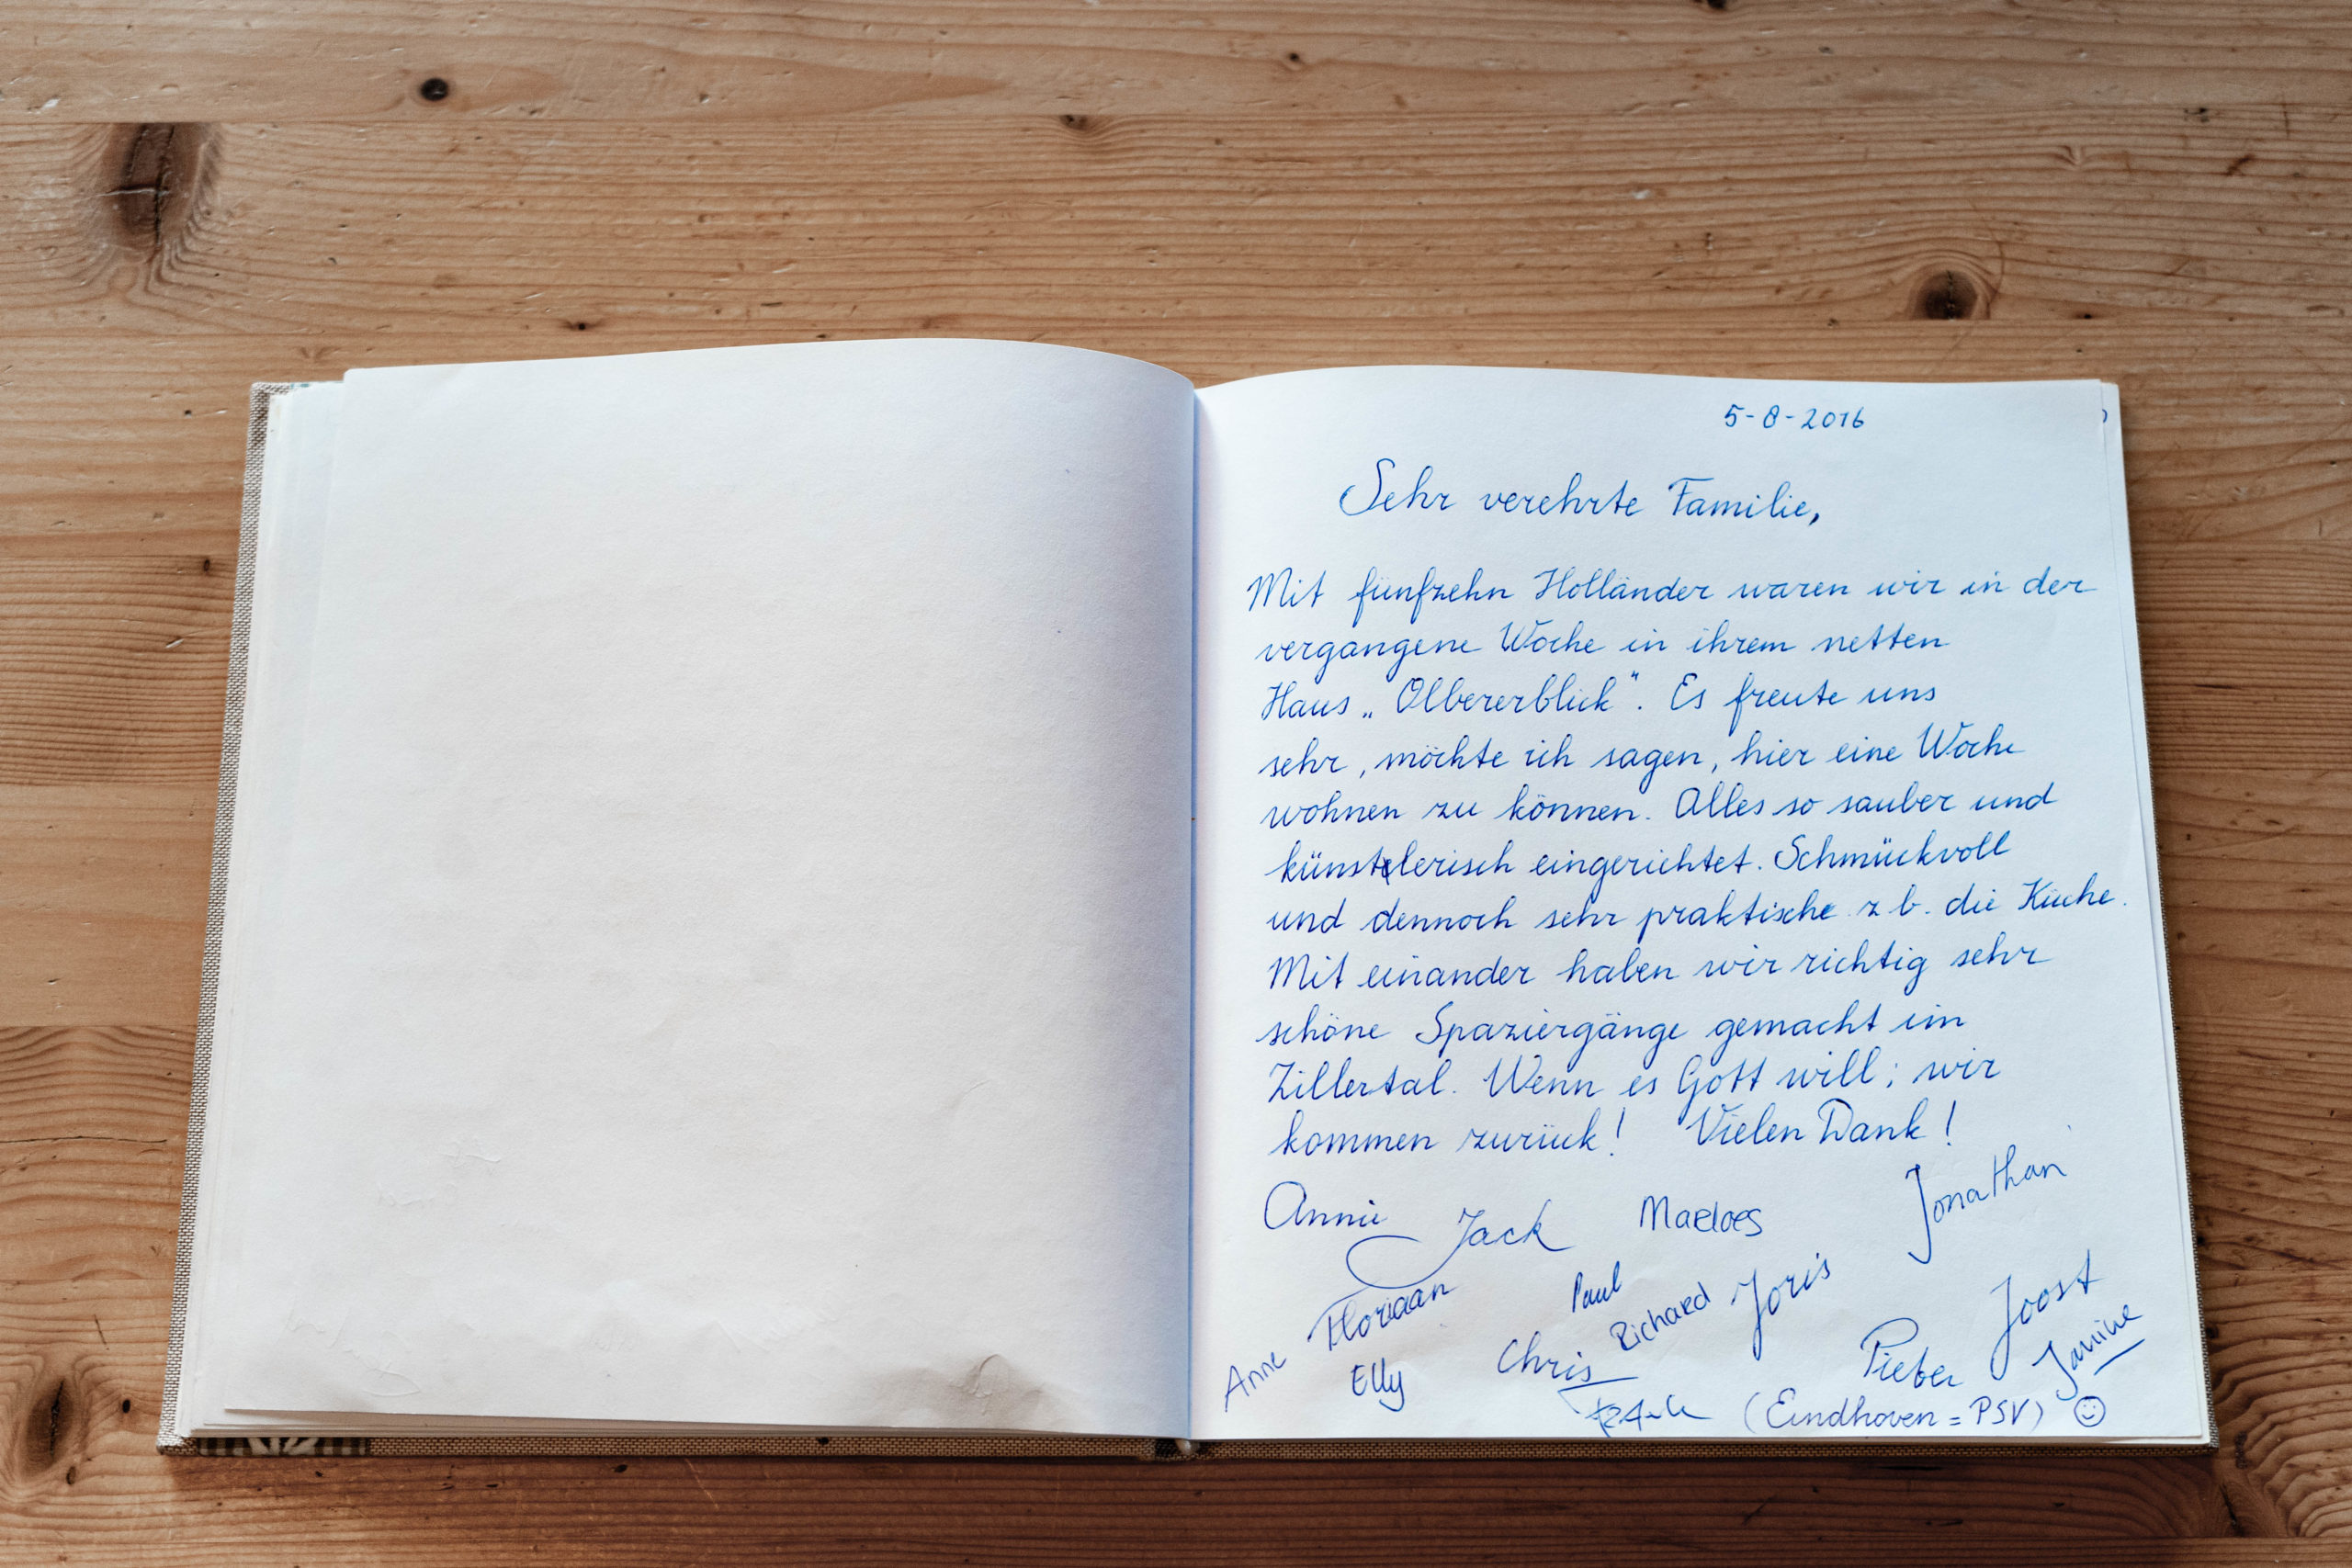 5-8-2016
Sehr verehrte Familie,
Mit fünfzehn Holländer waren wir in der
vergangene Woche in ihrem netten
Haus „Olbererblick“. Es freute uns
sehr, möchte ich sagen, hier eine Woche
wohnen zu können. Alles so sauber und
künstlerisch eingerichtet. Schmückvoll
und dennoch sehr praktische z b. die Küche.
Mit einander haben wir richtig sehr
schöne Spaziergänge gemacht im
Zillertal. Wenn es Gott will; wir
kommen zurück! Vielen Dank!
Annie Jack Marloes Jonathan
Floriaan Paul Richard Joris Joost
Anne Elly Chris Pieter Janine
(Eindhoven = PSV)